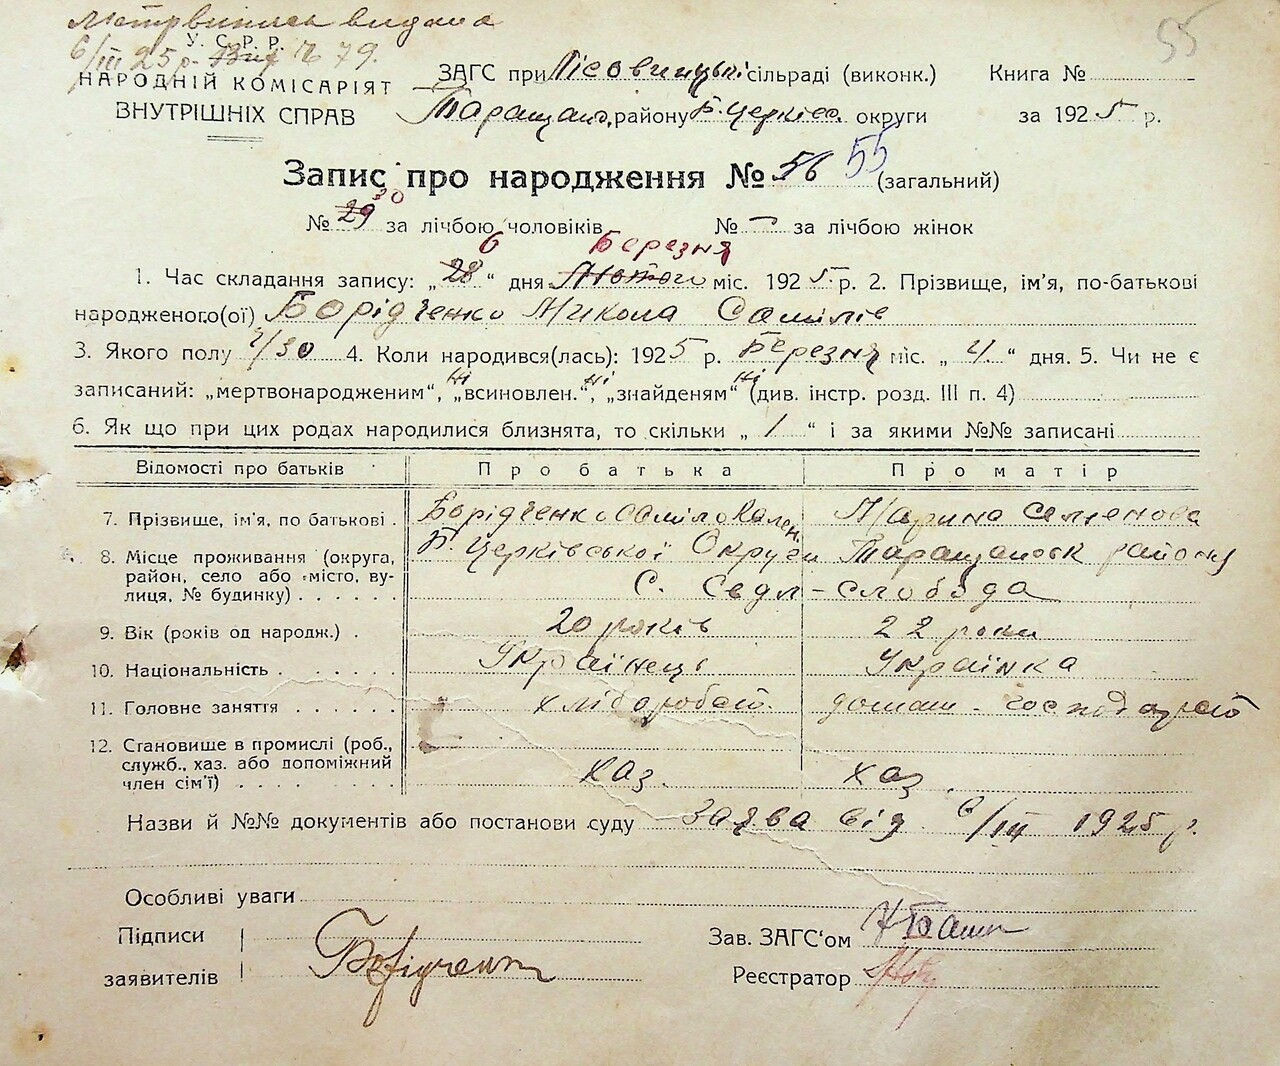 55
видана
У. С. Р. Р.
6/III 25 р. № 79.
НАРОДНІЙ КОМІСАРІЯТ
ВНУТРІШНІХ СПРАВ
ЗАГС при Лісовицькі сільраді (виконк.) Книга №
Таращан. району Б. Церківс. округи за 1925 р.
Запис про народження № 56 55 (загальний)
№ 29 30 за лічбою чоловіків № — за лічбою жінок
6 Березня
1. Час складання запису: „28“ дня Лютого міс. 1925 р. 2. Прізвище, ім'я, по-батькові
народженого(ої) Борідченко Микола Саміліє
3. Якого полу ч/30 4. Коли народився(лась): 1925 р. Березня міс. „4“ дня. 5. Чи не є
записаний: „мертвонародженим“, Ні „всиновлен.“, Ні „знайденям“ Ні (див. інстр. розд. III п. 4)
6. Як що при цих родах народилися близнята, то скільки „1“ і за якими №№ записані
Відомості про батьків Про батька Про матір
7. Прізвище, ім'я, по батькові . Борідченко Саміло Кален. Марина Семенова
8. Місце проживання (округа, район, село або місто, вулиця, № будинку) . . . . . Б. Церківської Округи Таращанськ района
С. Севл-слобода
9. Вік (років од народж.) . 20 років 22 роки
10. Національність . . . . . . Українець Українка
11. Головне заняття . . . . . . хлібороб домаш-господар
12. Становище в промислі (роб.,
служб., хаз. або допоміжний
член сім'ї) . . . . . . . . хаз. хаз.
Назви й №№ документів або постанови суду Заява від 6/III 1925 р.
Особливі уваги
Підписи
заявителів Борідченко
Зав. ЗАГС'ом
Реєстратор